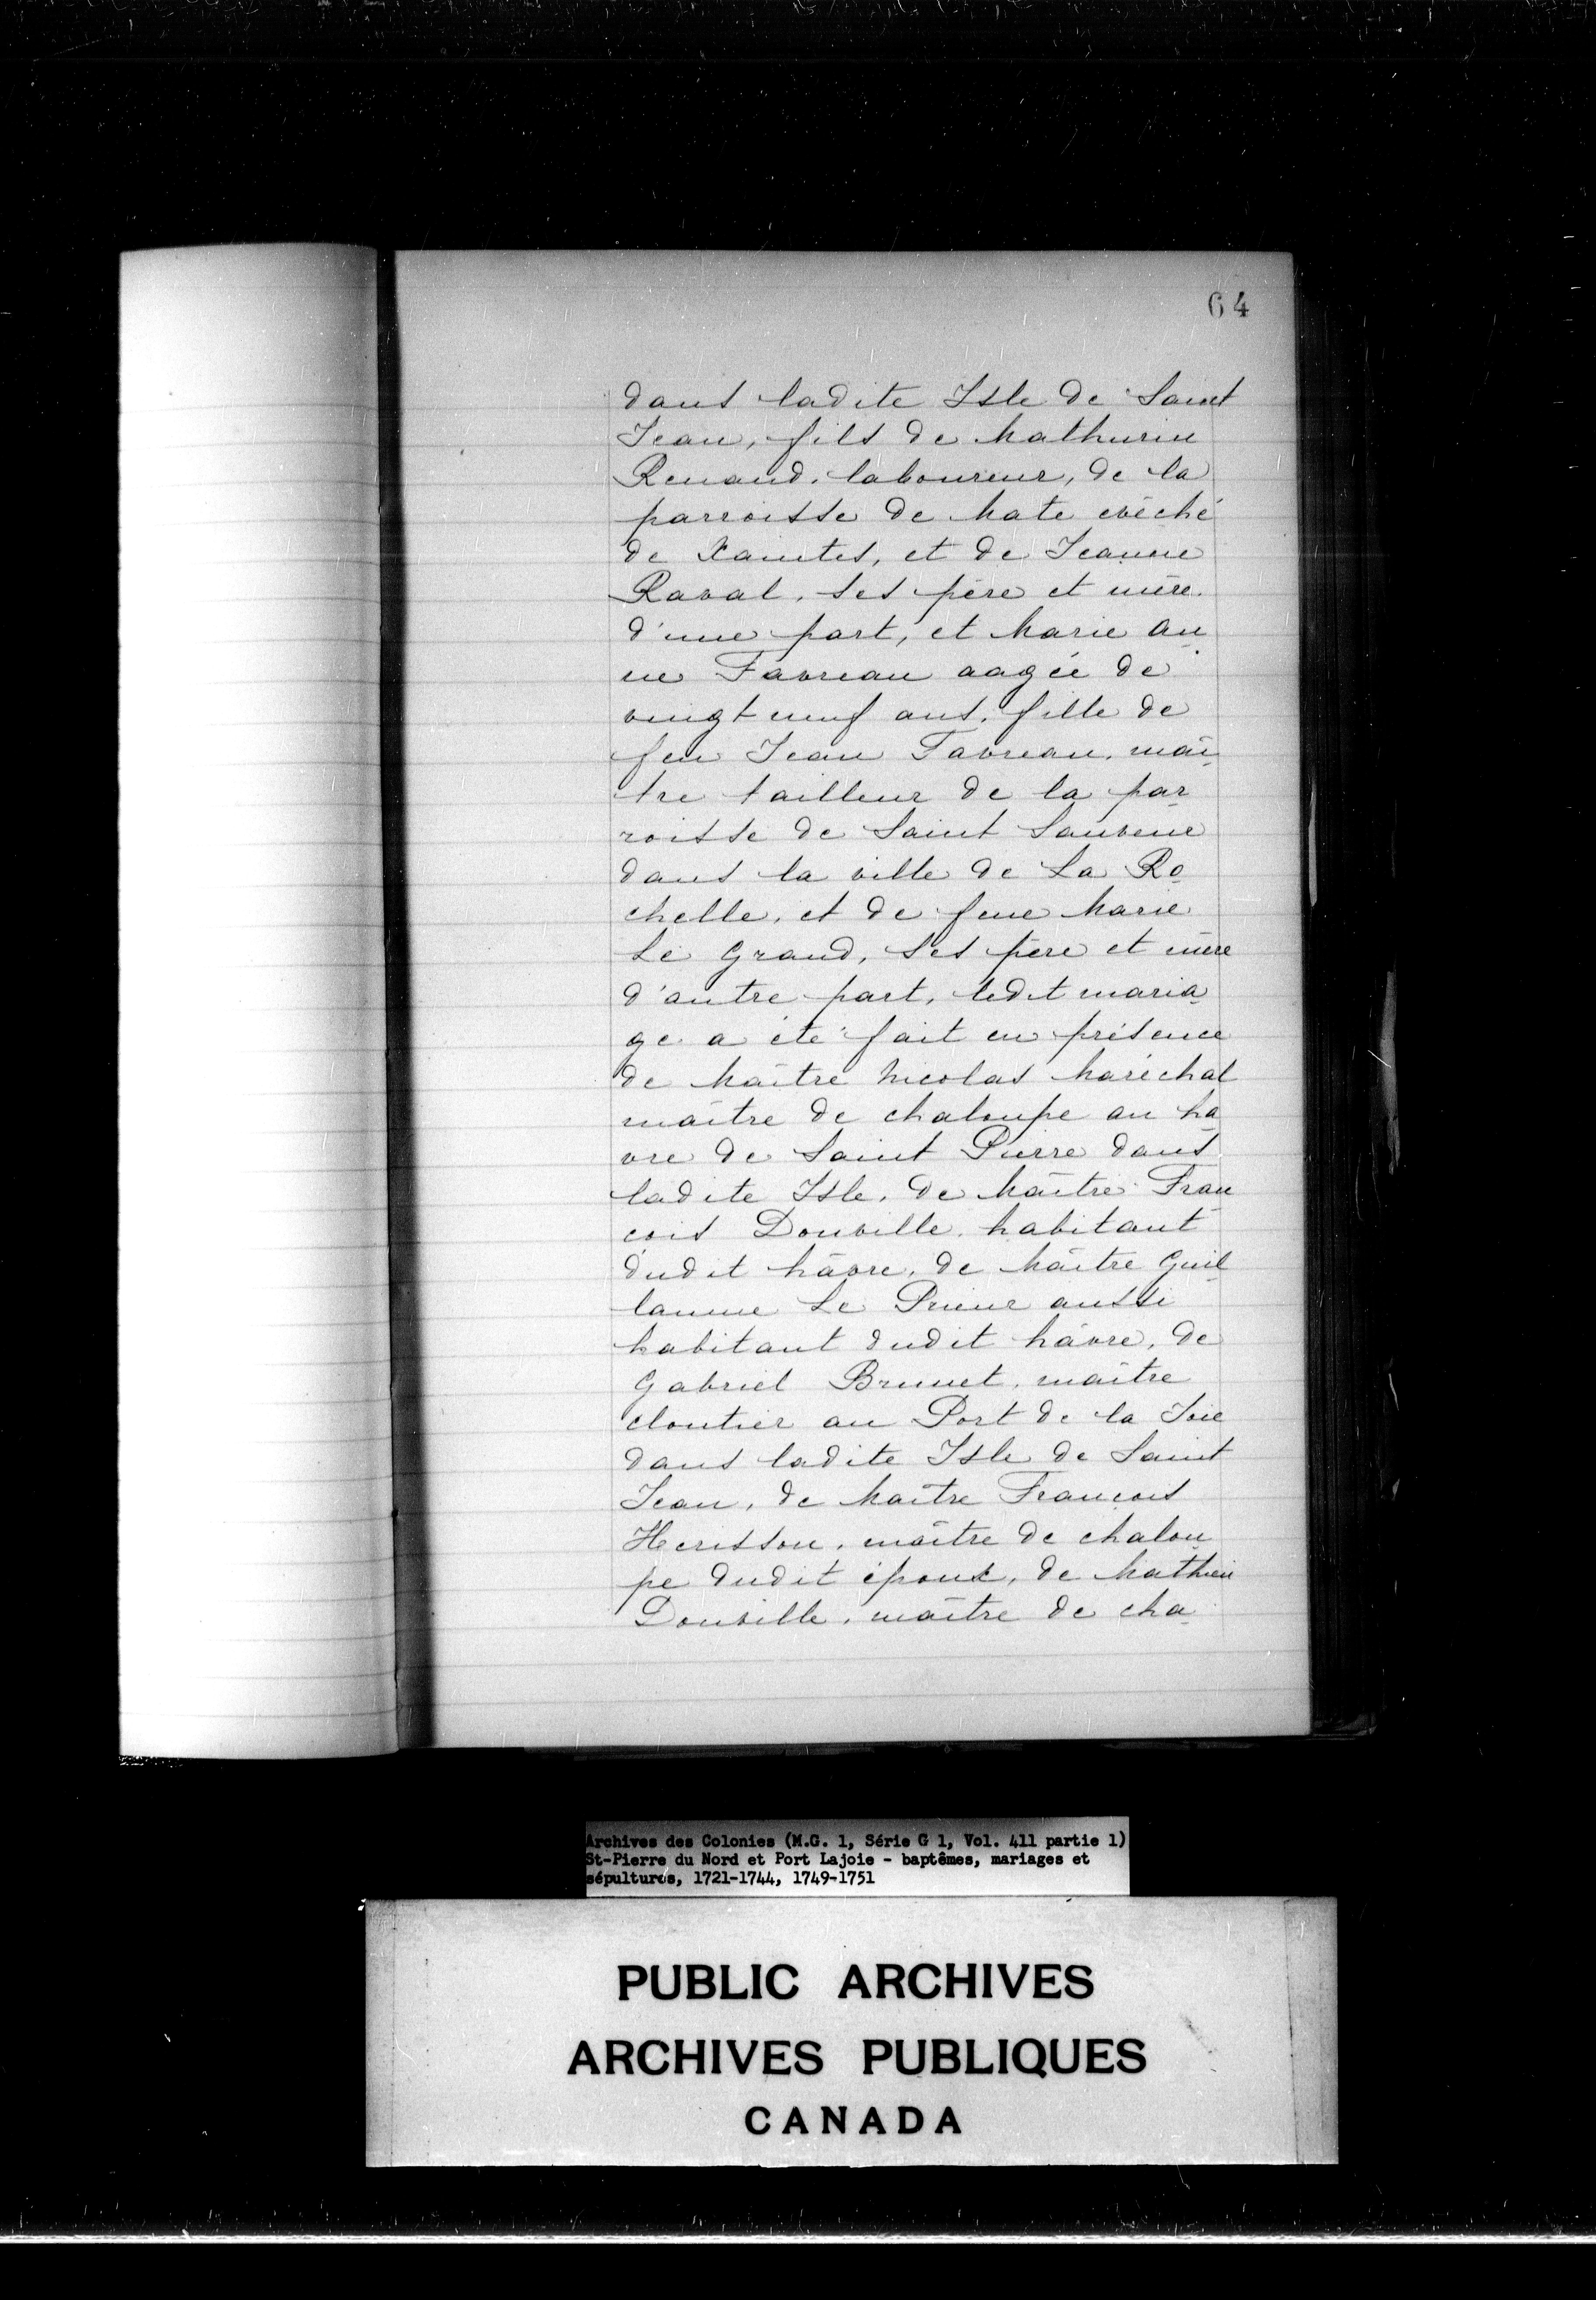 64
dans ladite Isle de Saint
Jean, fils de Mathurin
Renaud, laboureur, de la
parroisse de Mate evêché
de Xaintes, et de Jeanne
Raval, ses père et mère
d'une part, et Marie An
ne Favreau aagée de
vingt neuf ans, fille de
feu Jean Favreau, maî
tre tailleur de la par
roisse de Saint Sauveur
dans la ville de La Ro
chelle, et de feue Marie
Le Grand, ses père et mère
d'autre part, ledit maria
ge a été fait en présence
de Maître Nicolas Maréchal
maître de chaloupe au ha
vre de Saint Pierre dans
ladite Isle, de Maître Fran
çois Douville, habitant
dudit hâvre, de Maître Guil
laume Le Prieur aussi
habitant dudit hâvre, de
Gabriel Brunet, maître
cloutier au Port de la Joie
dans ladite Isle de Saint
Jean, de Maître François
Herisson, maître de chalou
pe dudit époux, de Mathieu
Douville, maître de cha
Archives des Colonies (M.G. 1, Série G 1, Vol. 411 partie 1)
St-Pierre du Nord et Port Lajoie - baptêmes, mariages et
sépultures, 1721-1744, 1749-1751
PUBLIC ARCHIVES
ARCHIVES PUBLIQUES
CANADA